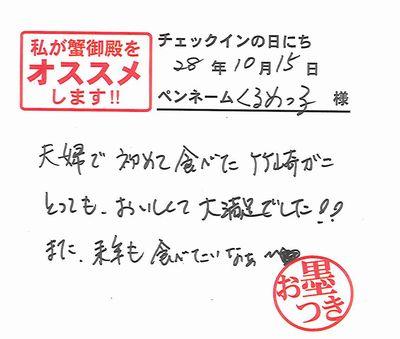 私が蟹御殿を
オススメ
します!!
チェックインの日にち
28年10月15日
ペンネームくるめっ子様
夫婦で初めて食べた竹崎がに
とっても、おいしくて大満足でした!!
また、来年も食べたいなぁ〜
お墨つき